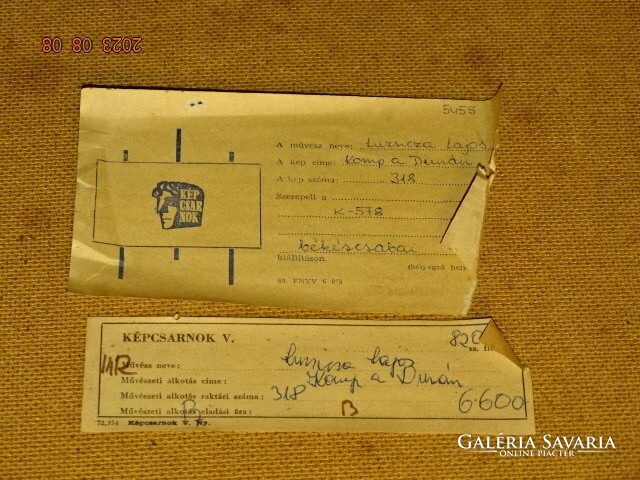 2023 08 08
5455
A művész neve: Luzsicza Lajos
A kép címe: Komp a Dunán
A kép száma: 318
Szerepelt a
K-578
békéscsabai
kiállításon.
(bélyegző hely
KÉP
CSAR
NOK
69. FNYV 6 678
KÉPCSARNOK V.
820
sz.
Művész neve: Luzsicza Lajos
Művészeti alkotás címe: Komp a Dunán
Művészeti alkotás raktári száma: 318
Művészeti alkotás eladási ára: B 6.600
72,354 Képcsarnok V. Ny.
GALÉRIA SAVARIA
ONLINE PIACTÉR